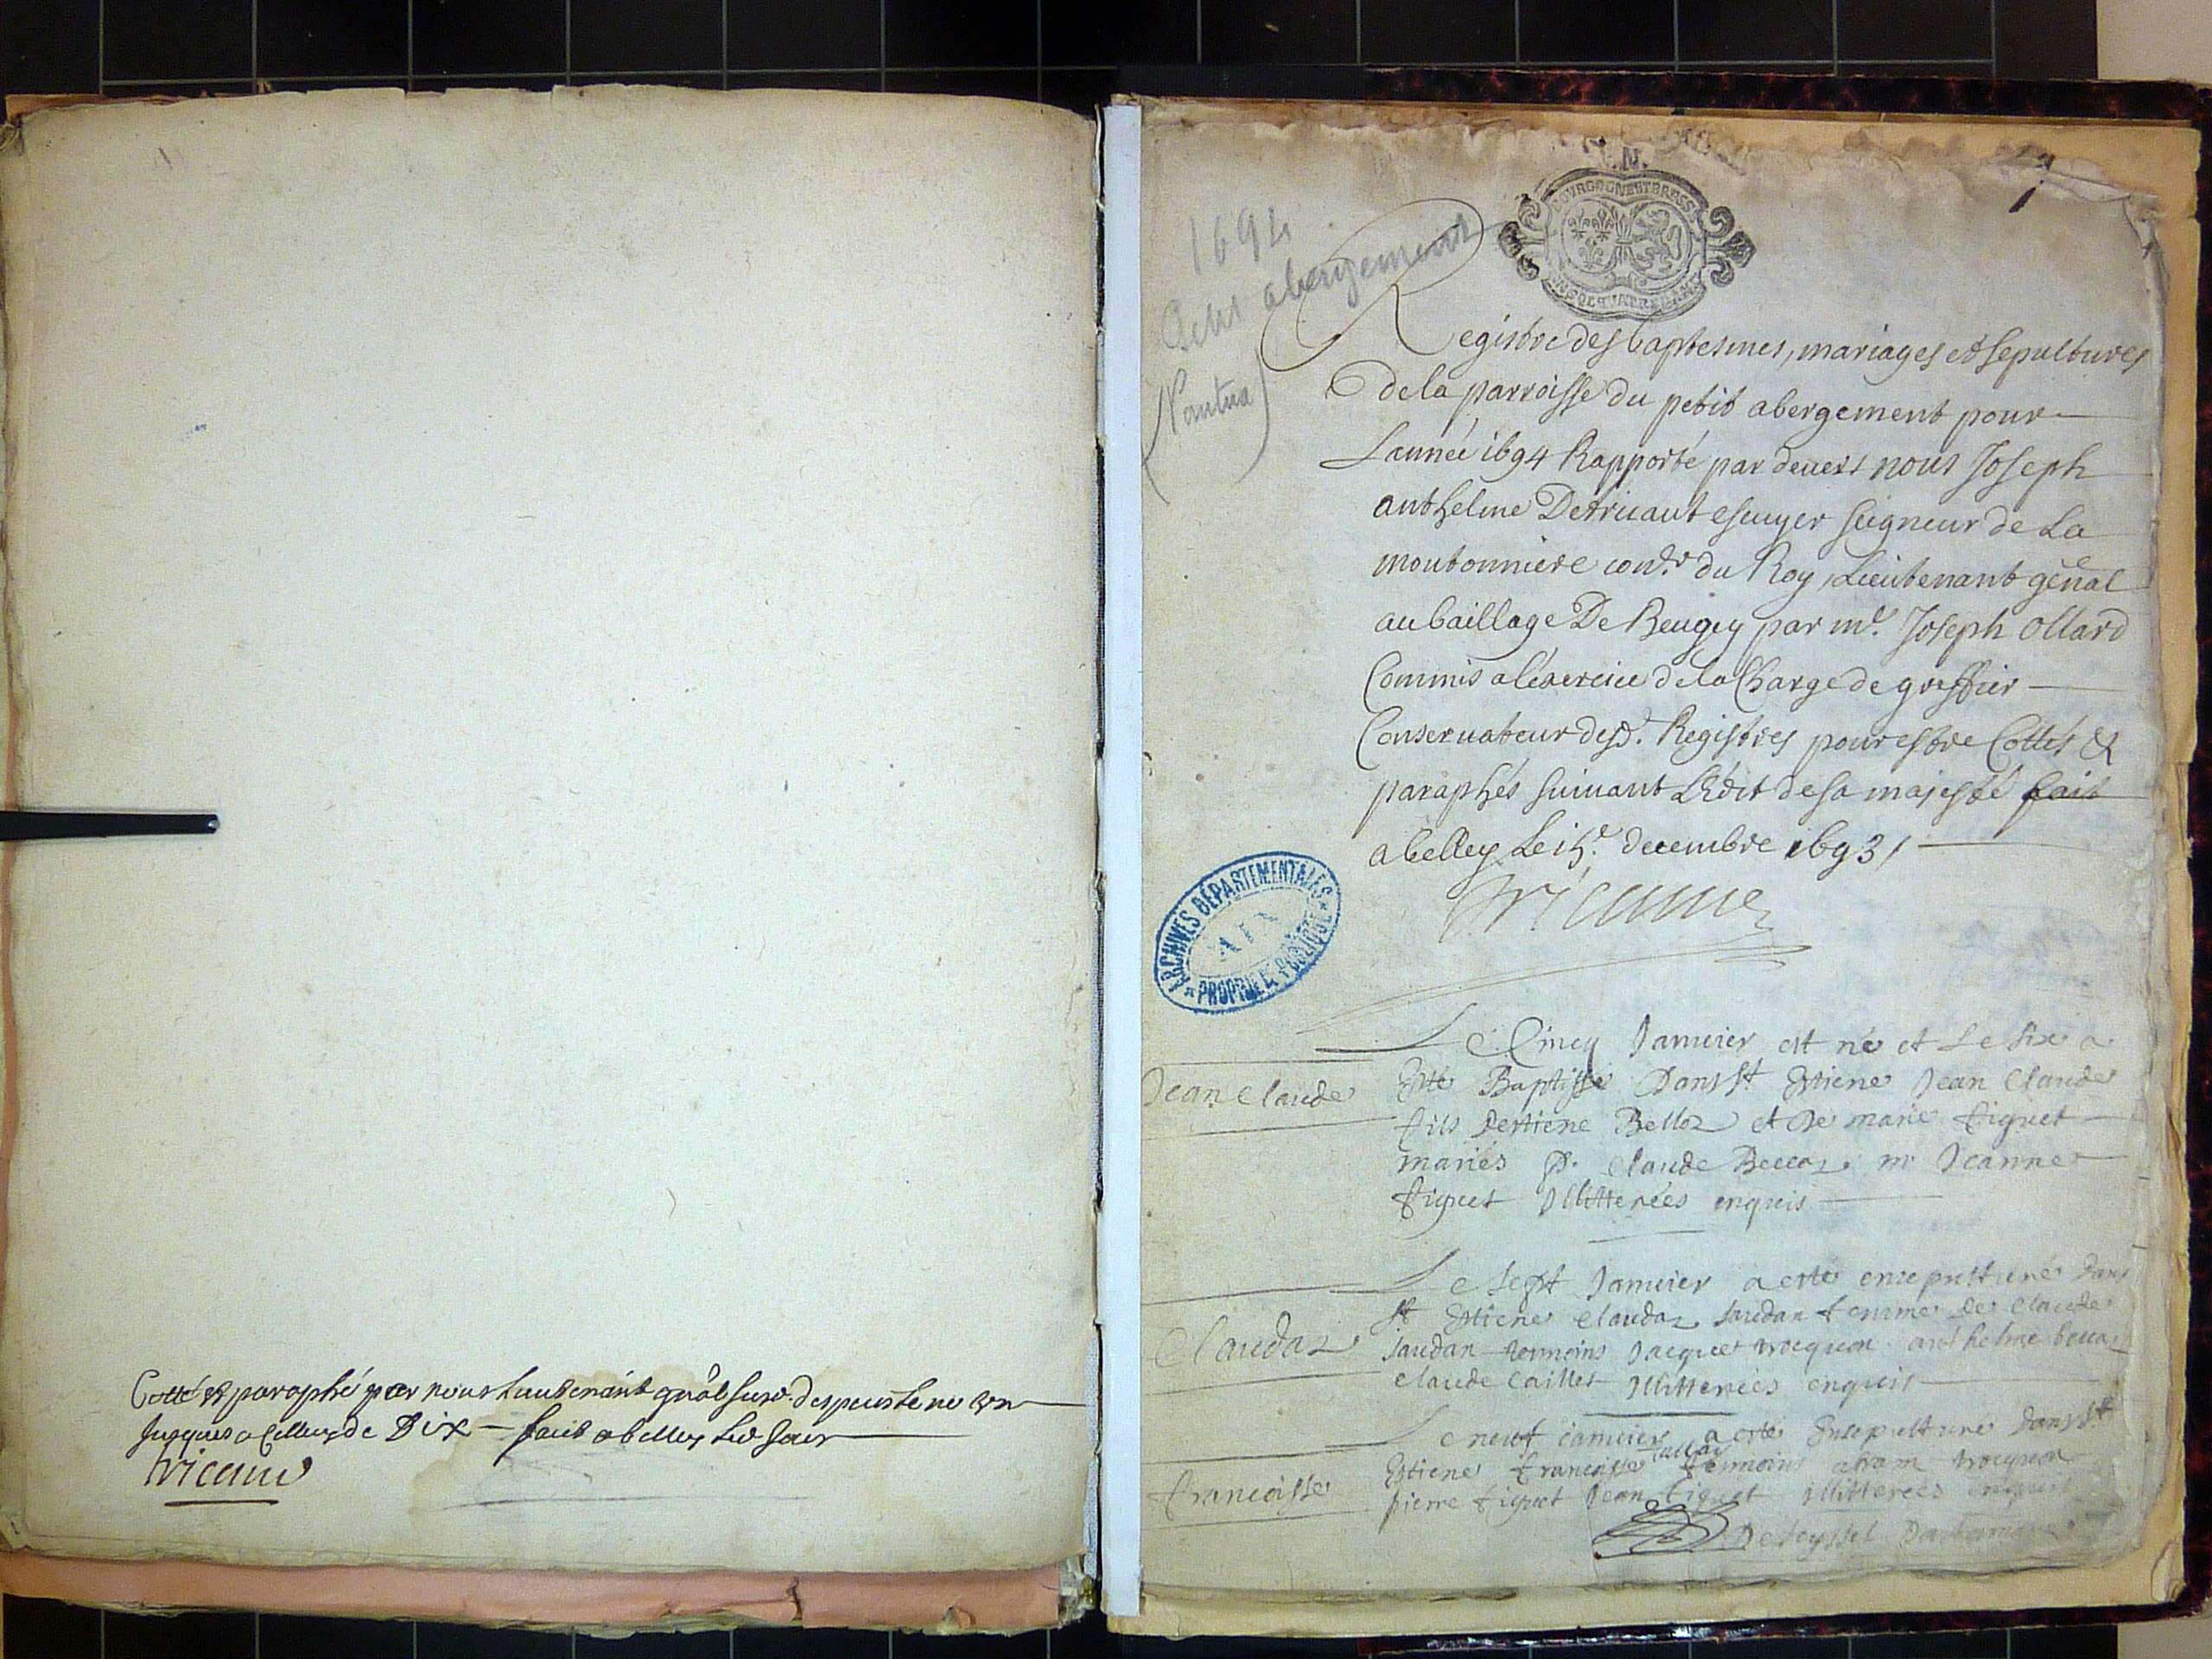 Cotté et paraphé par nous Lieutenant gñâl susd. despuis le no un
jusques a celluy de Dix fait a belley led jour
Tricaud
1
1694
Petit abergement
(Nantua)
BOURGOGNE ET BRESSE
Registre des baptesmes, mariages et sepultures
de la parroisse du petit abergement pour
Lannéé 1694 Rapporté par deuers nous Joseph
anthelme Detricaut escuyer seigneur de La
moutonniere conser du Roy, Lieutenant gênâl
au baillage De Beugey par me. Joseph ollard
Commis a léxercice de la Charge de greffier
Conseruateur desd. Registres pour estre Cottés &
paraphés suiuant L'Édit de sa majesté fait
a belley Le 15e. decembre 1693
Tricaud
ARCHIVES DÉPARTEMENTALES
AIN
* PROPRIÉTÉ PUBLIQUE *
Le Cincq Januier est né et Le Six a
Jean Claude
Esté Baptissé Dans St Estiene Jean Claude
fils Destiene Belloz et De marie figuet
mariés P. Claude Beccaz m Jeanne
figuet Jllitterées enquis
Le Sept Januier a esté ensepulturé dans
Claudaz
St Estiene Claudaz Jaudan femme de Claude
Jaudan temoins Jacque trocquon anthelme
Claude Caillet Jllitterées enquis
Le neuf Januier a esté Ensepulturé dans St
francoisse
Estiene francoisse temoins abram trocquon
pierre figuet Jean figuet Jllitterées enquis
De seyssel